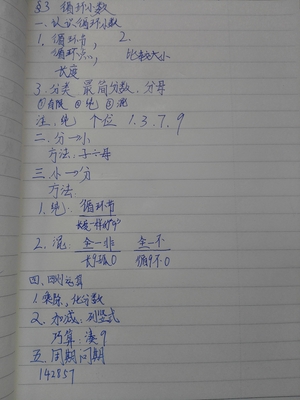 §3 循环小数
一、认识循环小数
1. 循环节, 2.
循环点, 比较大小
长度
3. 分类 最简分数, 分母
①有限 ②纯 ③混
注: 纯 个位 1. 3. 7. 9
二、分→小
方法: 子÷母
三、小→分
方法
1. 纯: 循环节
长度一样的"9"
2. 混 全-非 全-不
循9不0
四、四则运算
1. 乘除, 化分数
2. 加减: 列竖式
巧算: 凑9
五. 周期问题
142857